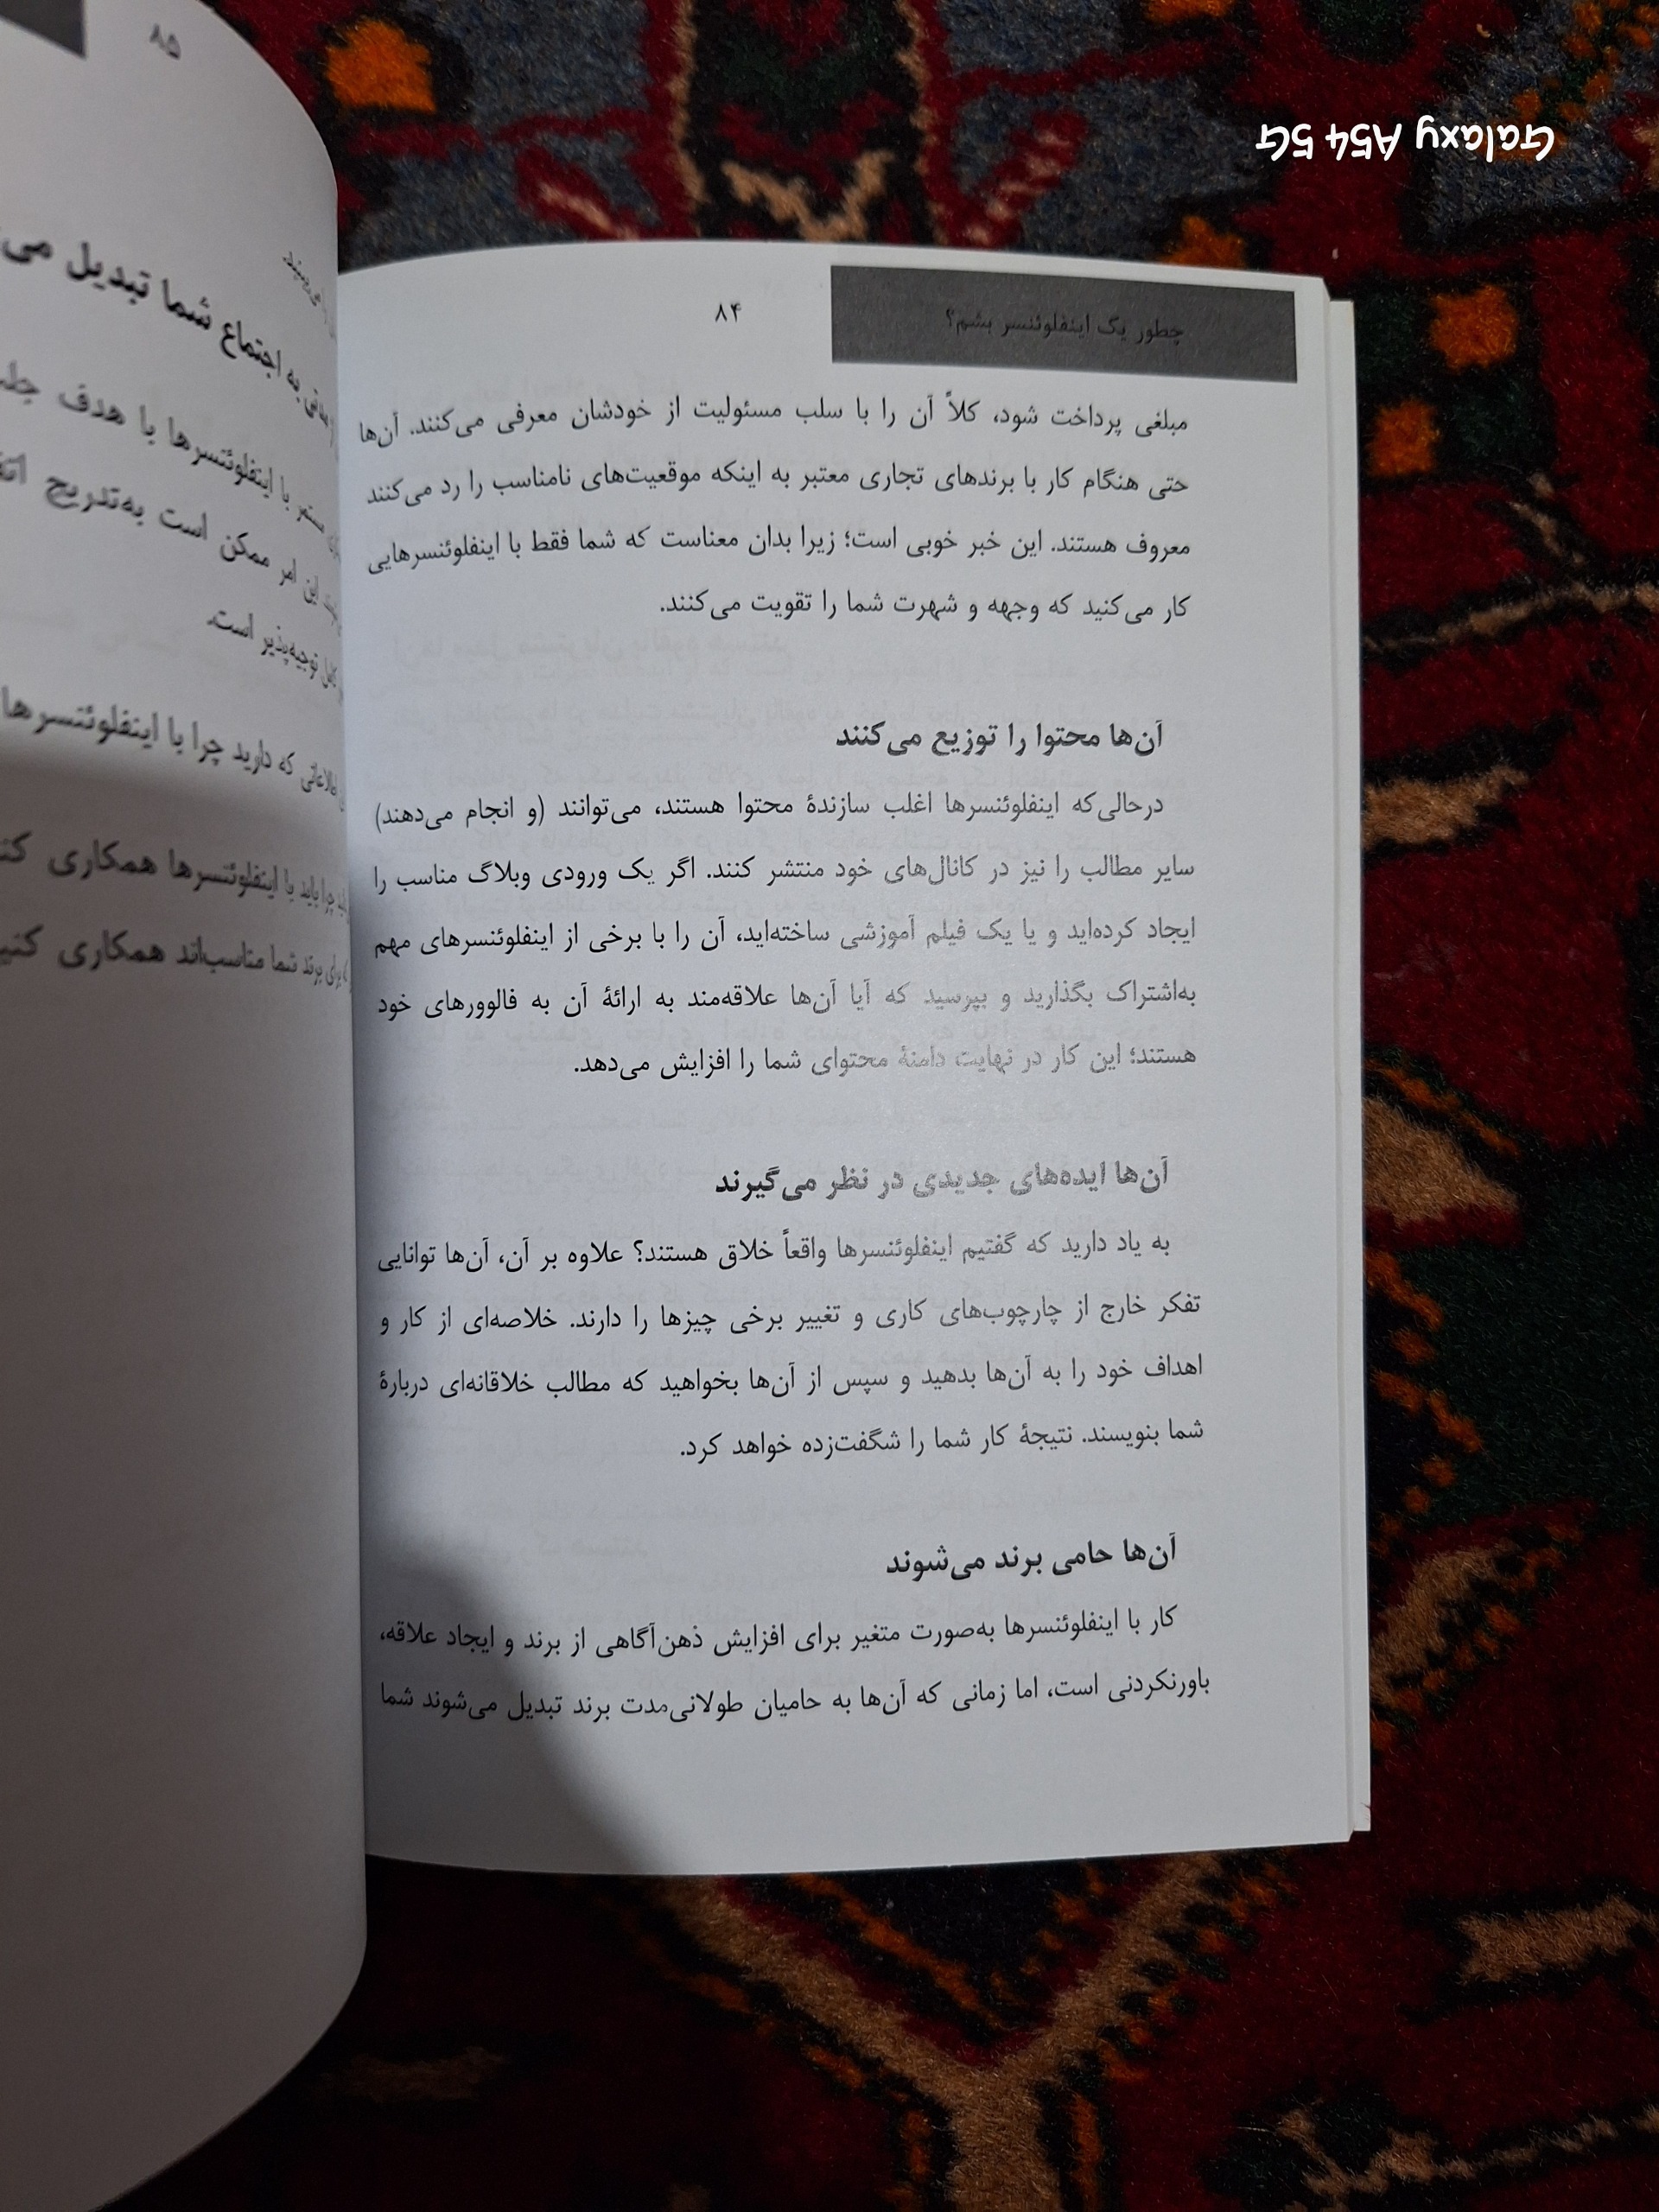 چطور یک اینفلوئنسر بشم؟
۸۴
مبلغی پرداخت شود، کلاً آن را با سلب مسئولیت از خودشان معرفی می‌کنند. آن‌ها
حتی هنگام کار با برندهای تجاری معتبر به اینکه موقعیت‌های نامناسب را رد می‌کنند
معروف هستند. این خبر خوبی است؛ زیرا بدان معناست که شما فقط با اینفلوئنسرهایی
کار می‌کنید که وجهه و شهرت شما را تقویت می‌کنند.
آن‌ها محتوا را توزیع می‌کنند
درحالی‌که اینفلوئنسرها اغلب سازندهٔ محتوا هستند، می‌توانند (و انجام می‌دهند)
سایر مطالب را نیز در کانال‌های خود منتشر کنند. اگر یک ورودی وبلاگ مناسب را
ایجاد کرده‌اید و یا یک فیلم آموزشی ساخته‌اید، آن را با برخی از اینفلوئنسرهای مهم
به‌اشتراک بگذارید و بپرسید که آیا آن‌ها علاقه‌مند به ارائهٔ آن به فالوورهای خود
هستند؛ این کار در نهایت دامنهٔ محتوای شما را افزایش می‌دهد.
آن‌ها ایده‌های جدیدی در نظر می‌گیرند
به یاد دارید که گفتیم اینفلوئنسرها واقعاً خلاق هستند؟ علاوه بر آن، آن‌ها توانایی
تفکر خارج از چارچوب‌های کاری و تغییر برخی چیزها را دارند. خلاصه‌ای از کار و
اهداف خود را به آن‌ها بدهید و سپس از آن‌ها بخواهید که مطالب خلاقانه‌ای دربارهٔ
شما بنویسند. نتیجهٔ کار شما را شگفت‌زده خواهد کرد.
آن‌ها حامی برند می‌شوند
کار با اینفلوئنسرها به‌صورت متغیر برای افزایش ذهن‌آگاهی از برند و ایجاد علاقه،
باورنکردنی است، اما زمانی که آن‌ها به حامیان طولانی‌مدت برند تبدیل می‌شوند شما
۸۵
به اجتماع شما تبدیل
مستمر با اینفلوئنسرها با هدف
این امر ممکن است به‌تدریج
توجیه‌پذیر است.
که دارید چرا با اینفلوئنسرها
چرا باید با اینفلوئنسرها همکاری
برای برند شما مناسب‌اند همکاری
Galaxy A54 5G